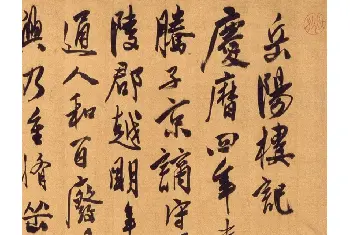 岳陽樓記
慶曆四年春
滕子京謫守
陵郡越明年
通人和百廢
興乃重脩岳